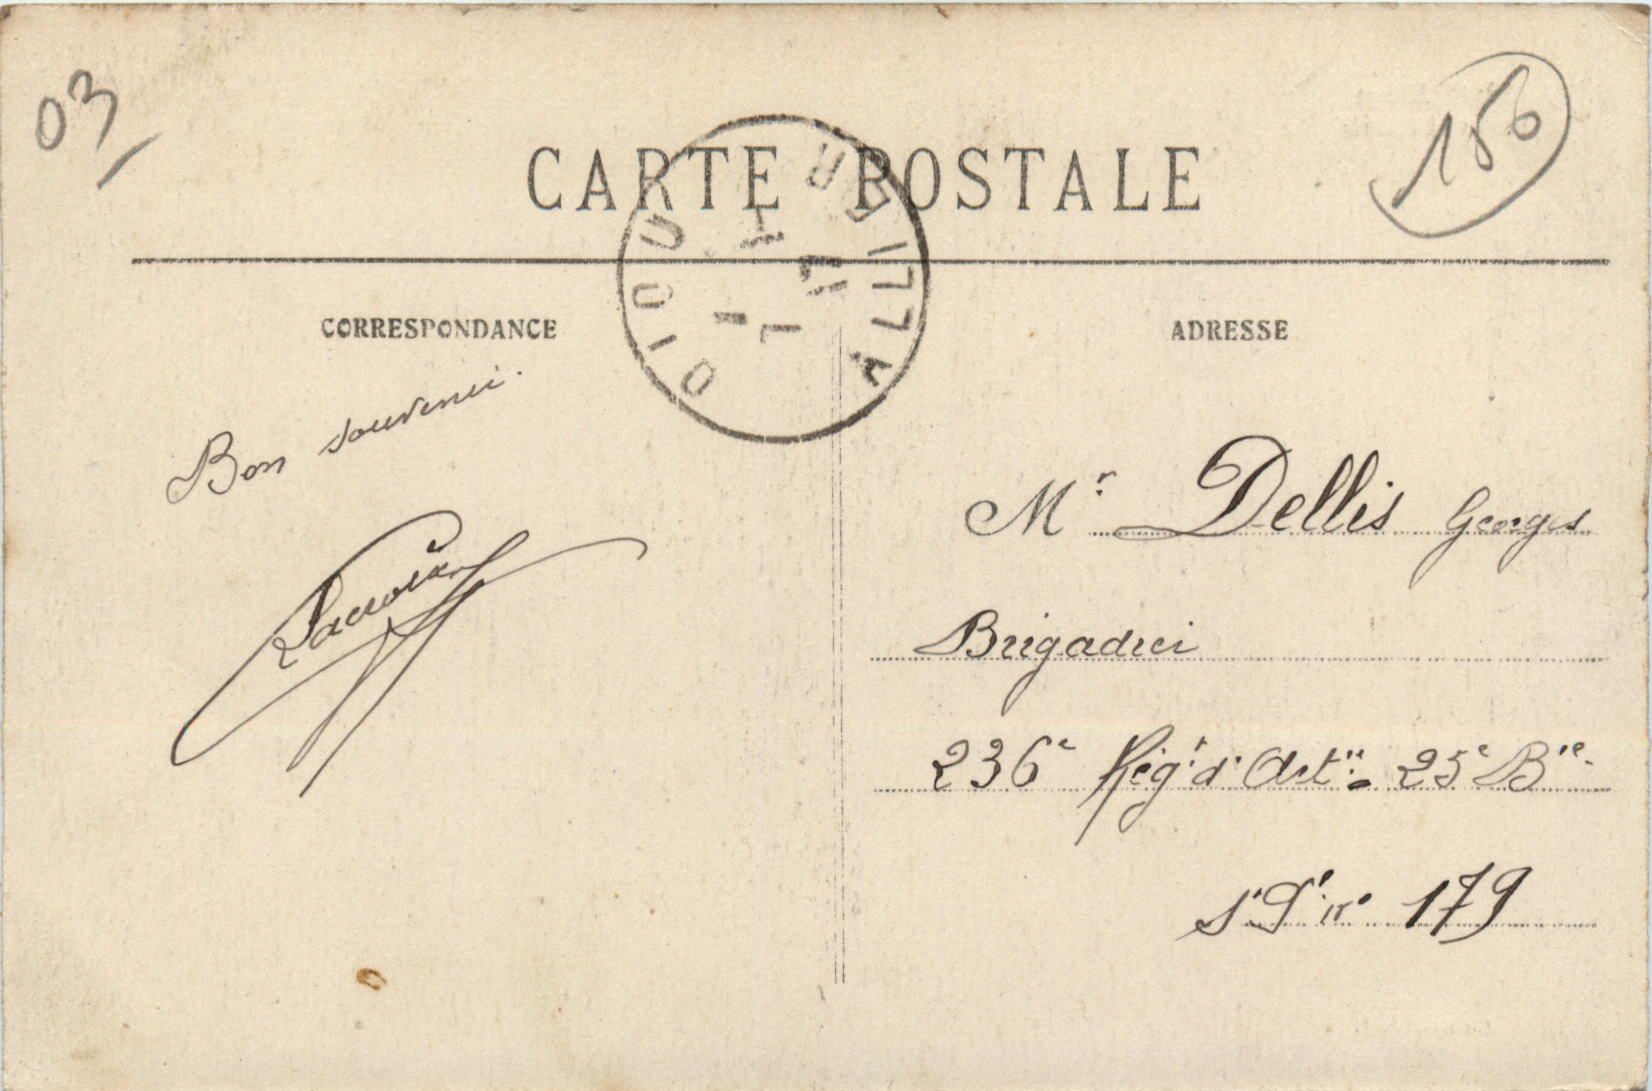 03
156
CARTE POSTALE
DIOU
ALLIER
CORRESPONDANCE
ADRESSE
Bon souvenir.
Lacroix
Mr. Dellis Georges
Brigadier
236e Régt d'Artie. 25e Bie.
S.P. no 179